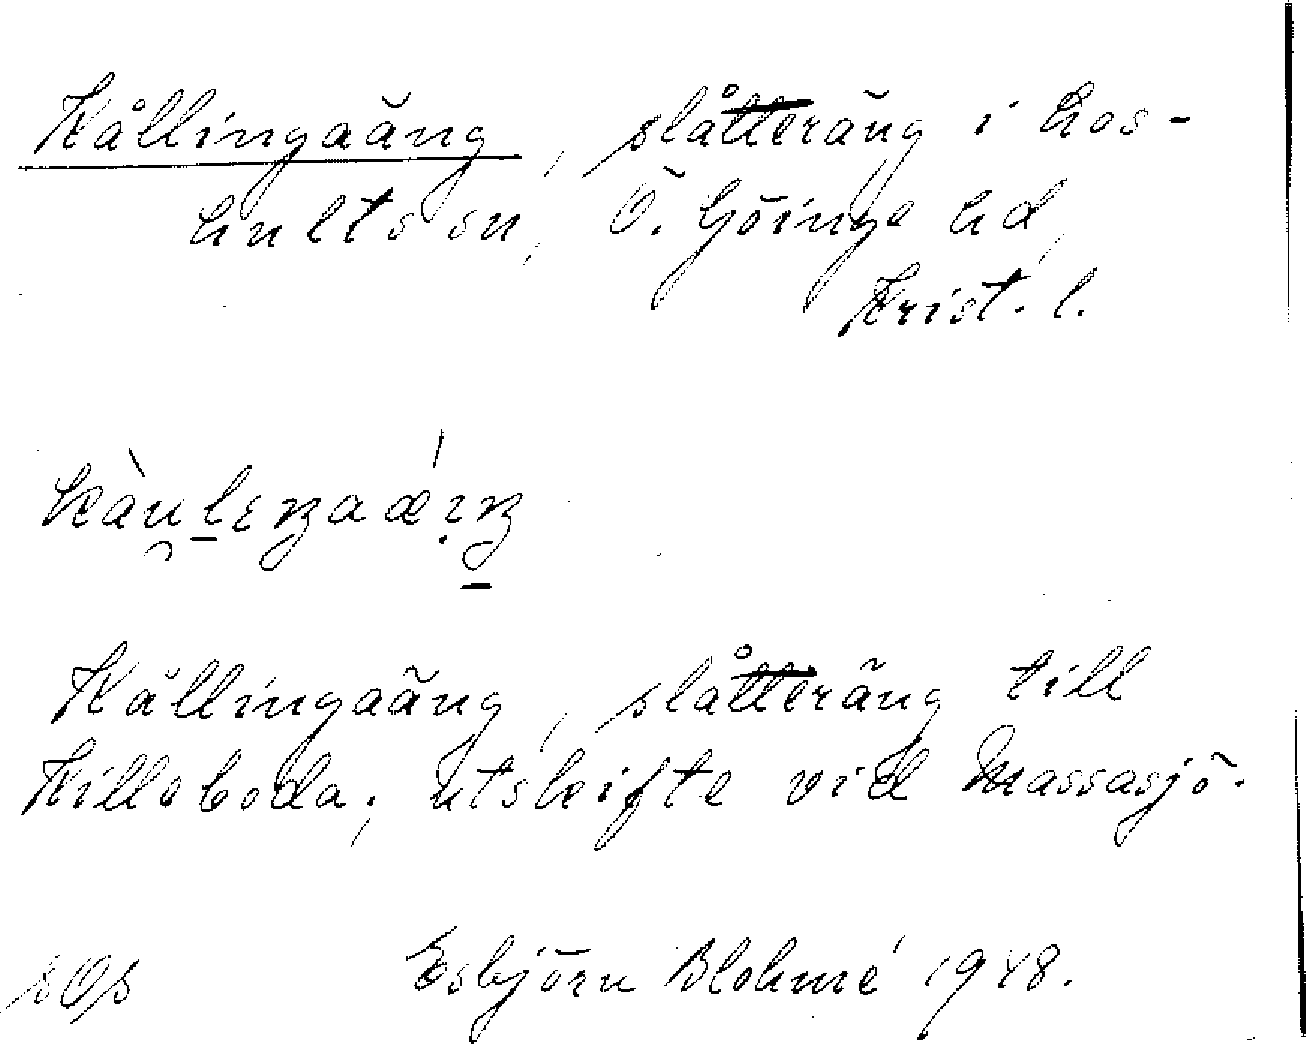 Kållingaäng, slåtteräng i Los-
hults sn, Ö. Göinge hd,
Krist. l.
Kållingaäng, slåtteräng till
Killeboda, utskifte vid Massasjö.
Esbjörn Blohmé 1948.